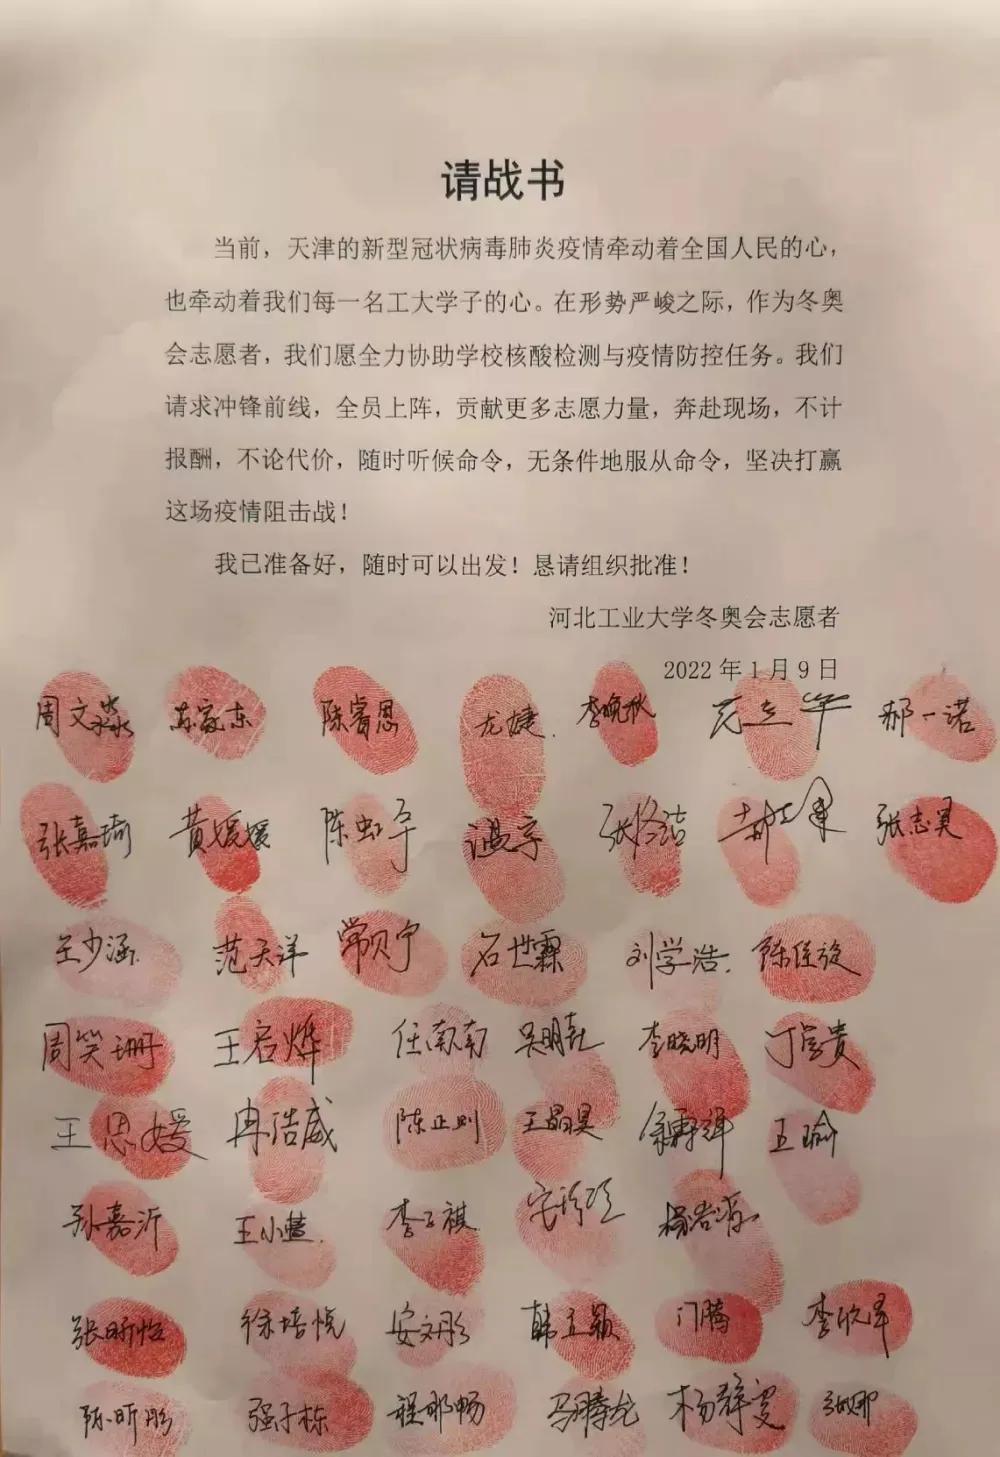 请战书
当前，天津的新型冠状病毒肺炎疫情牵动着全国人民的心，
也牵动着我们每一名工大学子的心。在形势严峻之际，作为冬奥
会志愿者，我们愿全力协助学校核酸检测与疫情防控任务。我们
请求冲锋前线，全员上阵，贡献更多志愿力量，奔赴现场，不计
报酬，不论代价，随时听候命令，无条件地服从命令，坚决打赢
这场疫情阻击战！
我已准备好，随时可以出发！恳请组织批准！
河北工业大学冬奥会志愿者
2022 年 1 月 9 日
周文淼 苏家东 陈睿恩 尤婕 李晚秋 郝一诺
张嘉琦 黄媛媛 温宇 张志昊
王少涵 范天洋 常贝宁 石世霖 刘学浩 陈佳旋
周笑珊 王启烨 任南南 李晓明
王思媛 冉浩威 陈正则 王晶昊 王瑜
孙嘉沂 王小慧 李子祺
张昕怡 徐培悦 安文彤 韩立颖 门腾 李欣泽
陈昕彤 强子栋 程郁畅 马腾龙 杨静雯 张娜